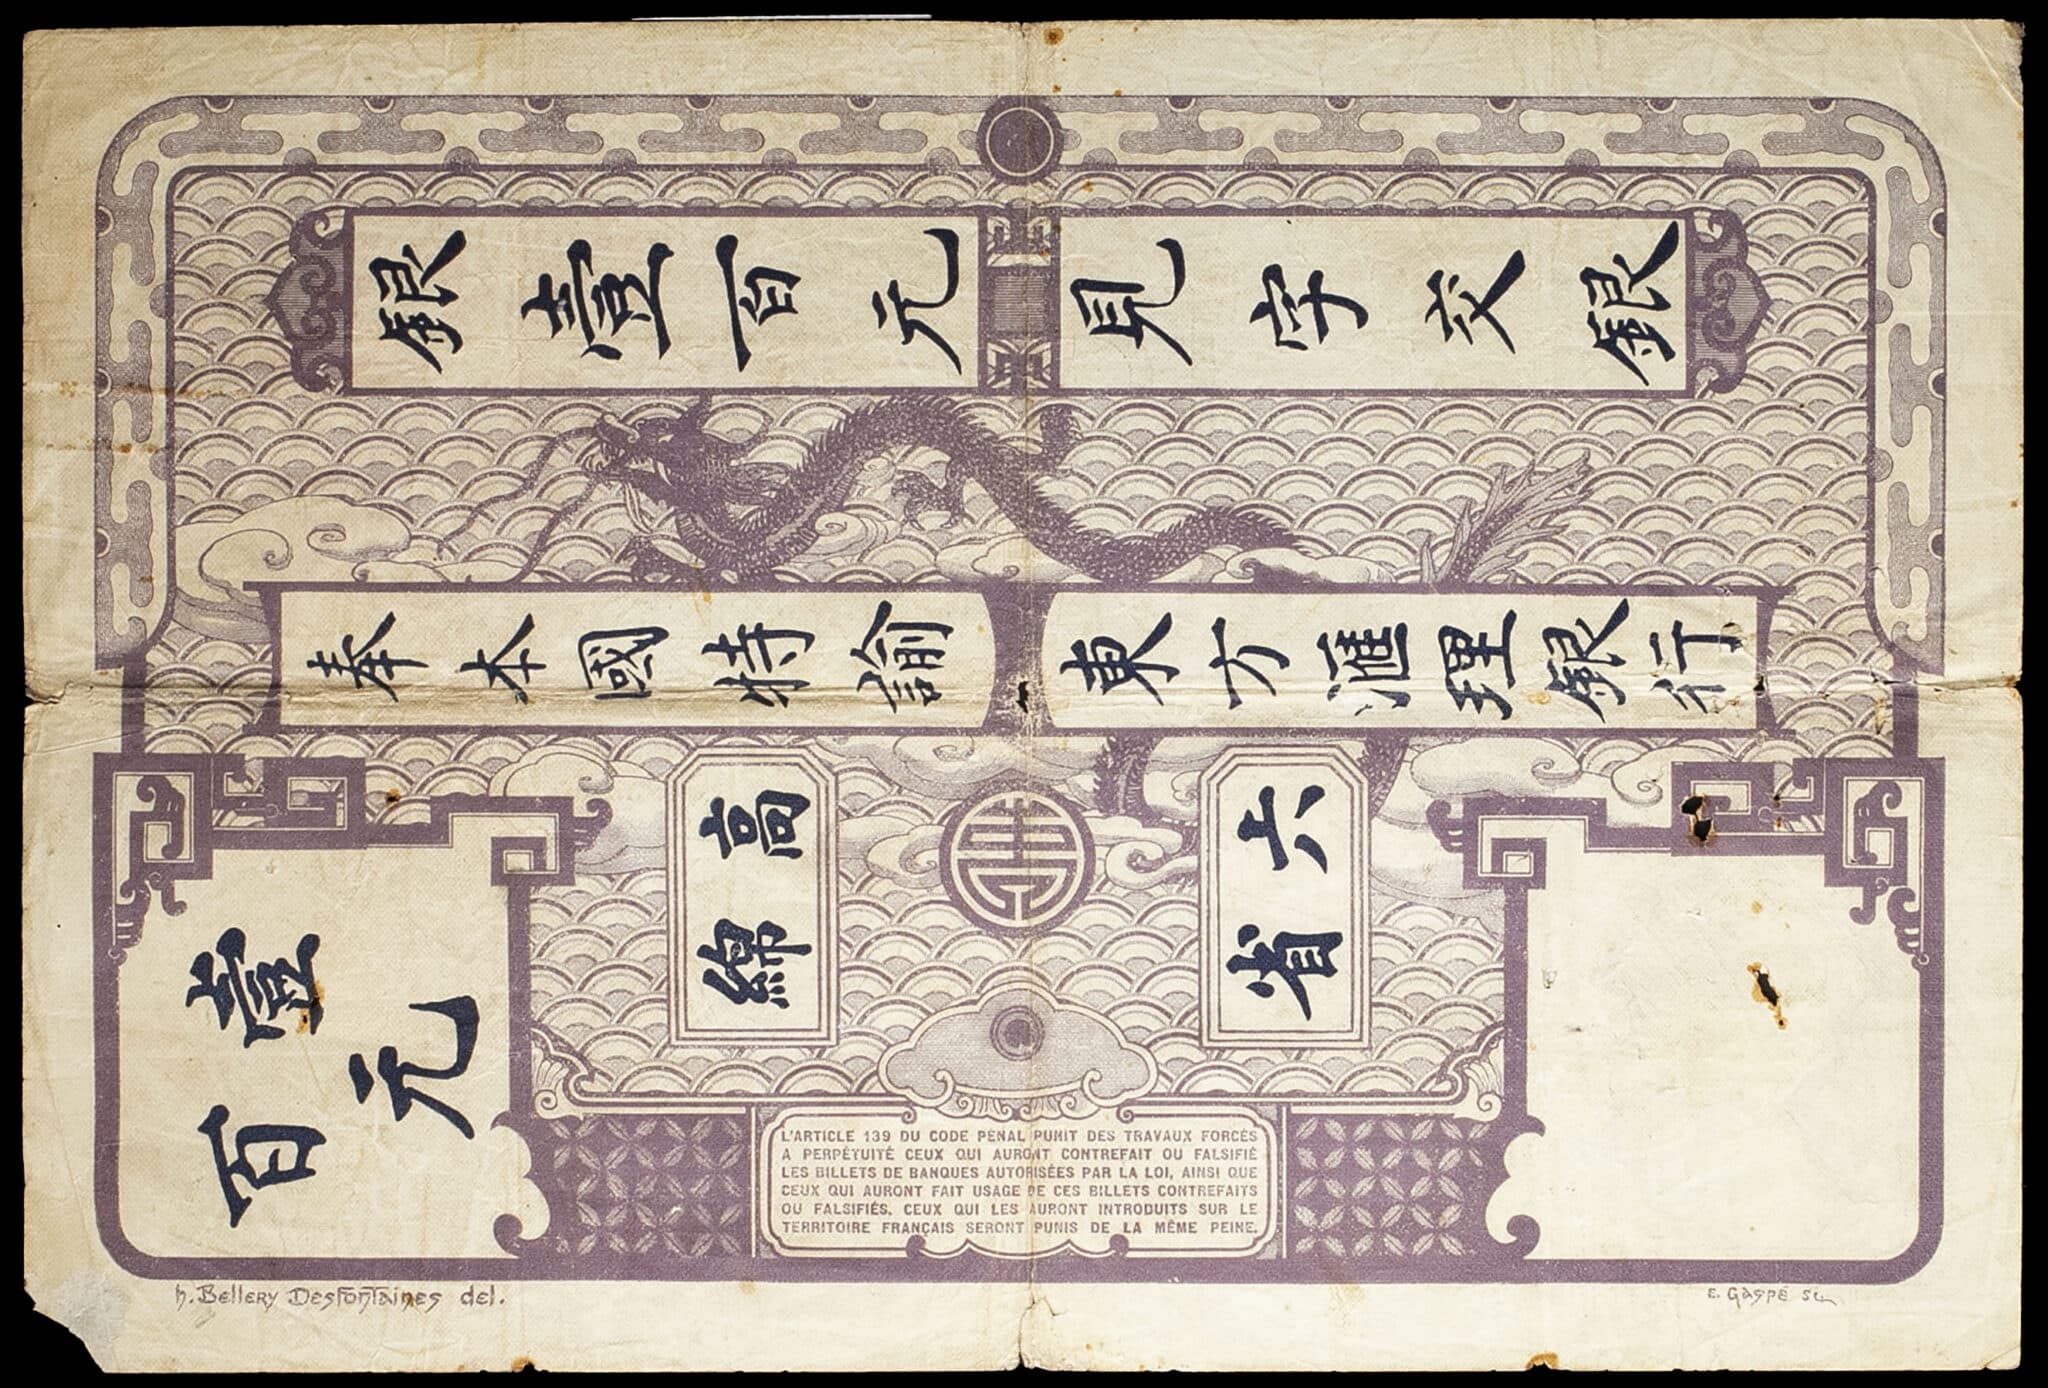 銀壹百元
見字交銀
奉本國特諭
東方滙理銀行
高綿
六省
壹百
元
L'ARTICLE 139 DU CODE PENAL PUNIT DES TRAVAUX FORCÉS
A PERPÉTUITÉ CEUX QUI AURONT CONTREFAIT OU FALSIFIÉ
LES BILLETS DE BANQUES AUTORISÉES PAR LA LOI, AINSI QUE
CEUX QUI AURONT FAIT USAGE DE CES BILLETS CONTREFAITS
OU FALSIFIÉS. CEUX QUI LES AURONT INTRODUITS SUR LE
TERRITOIRE FRANÇAIS SERONT PUNIS DE LA MÊME PEINE.
h. Bellery Desfontaines del.
E. Gaspé Sc